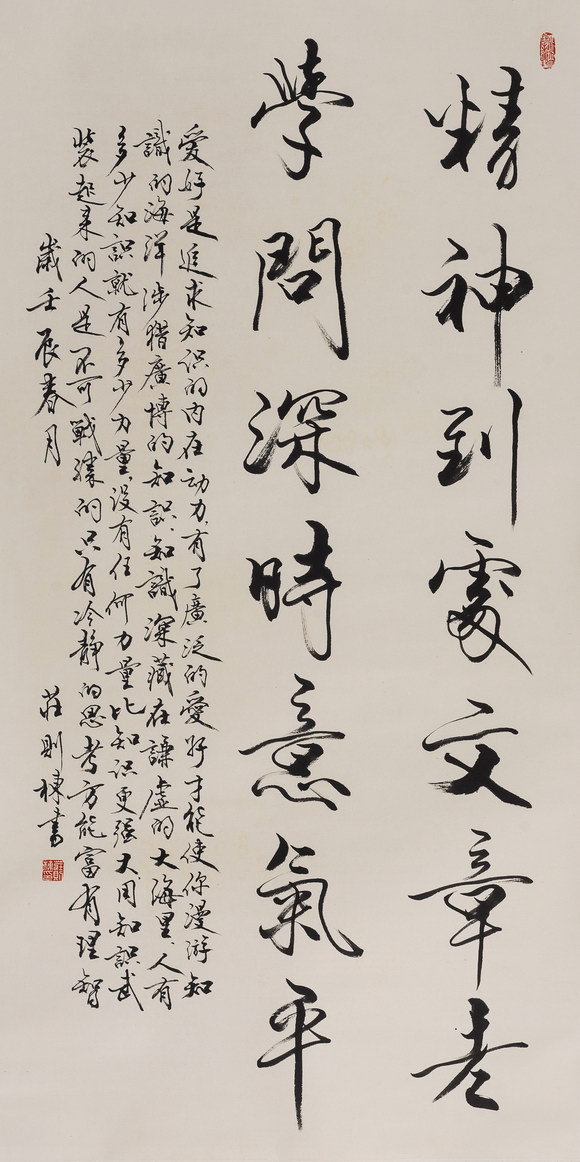 精神到處文章老
學問深時意氣平
愛好是追求知识的内在动力,有了廣泛的愛好才能使你漫游知
識的海洋涉猎廣博的知識、知識深藏在謙虚的大海里、人有
多少知識就有多少力量,没有任何力量比知识更强大用知識武
裝起来的人是不可戰勝的只有冷静的思考方能富有理智
歲壬辰春月
莊則棟書